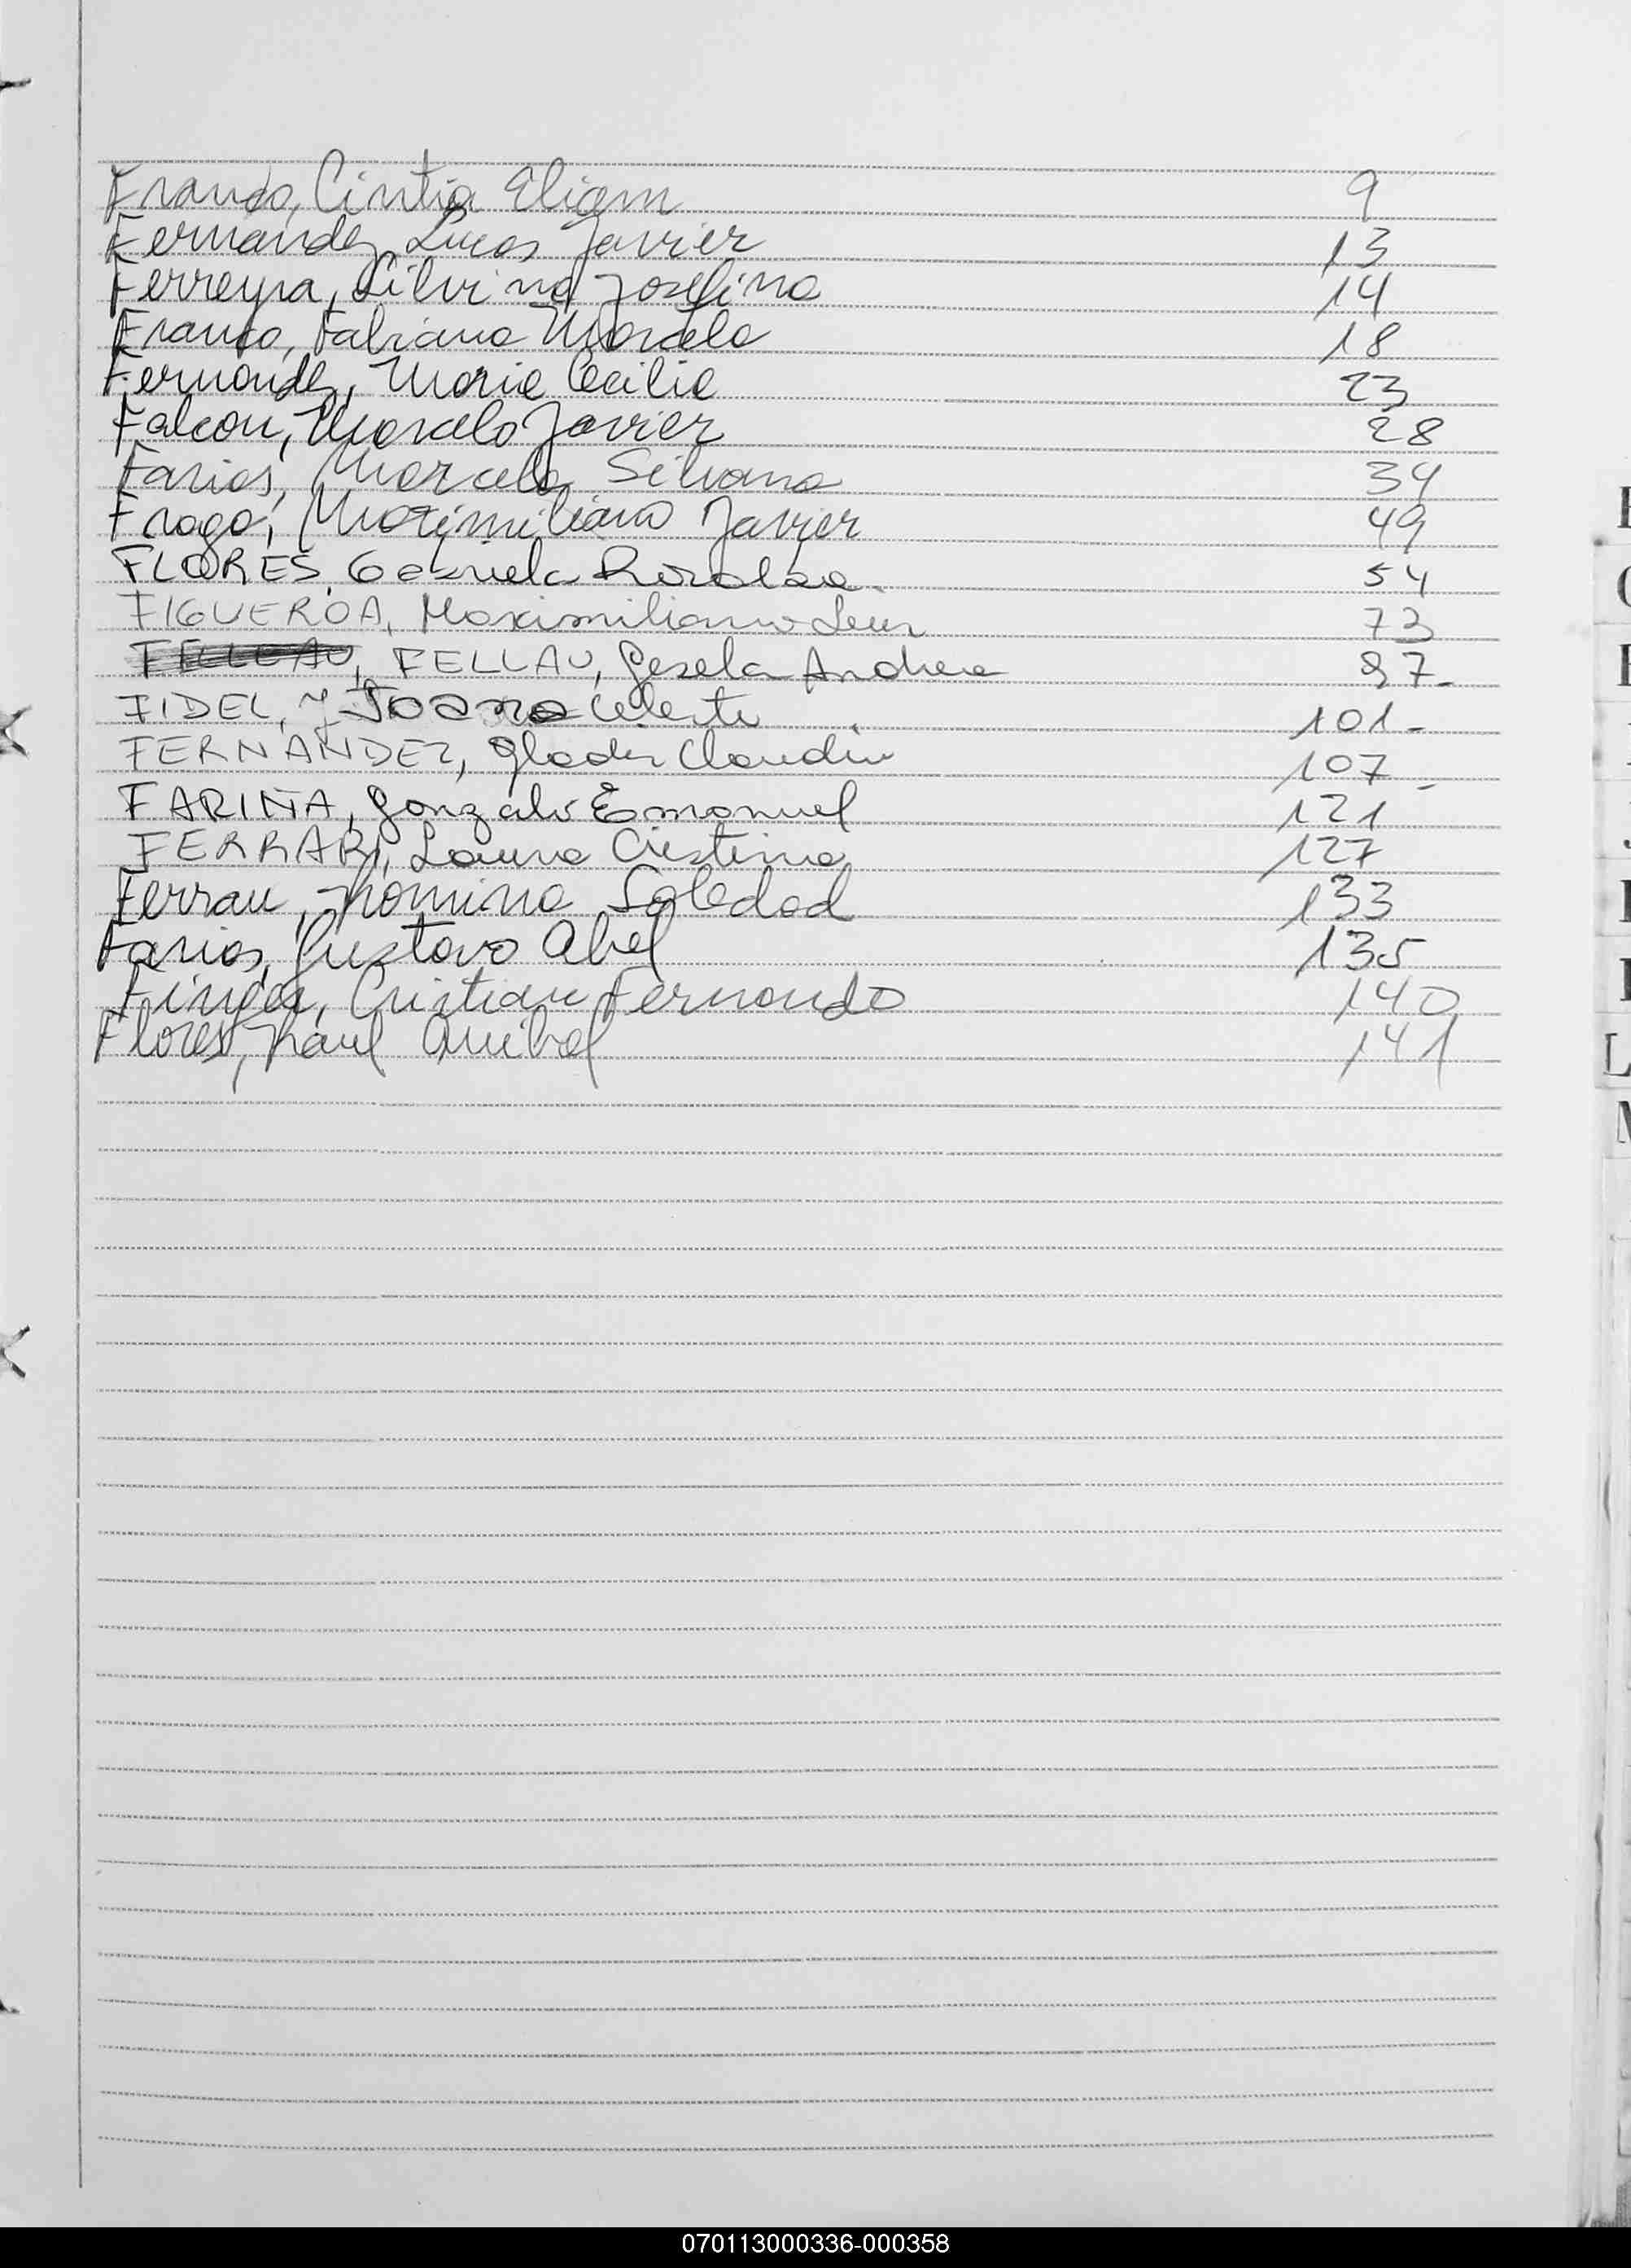 Franco, Cintia Eliam 9
Fernandez, Lucas Javier 13
Ferreyra, Silvina Josefina 14
Franco, Fabiana Marcela 18
Fernandez, Maria Cecilia 23
Falcon, Marcelo Javier 28
Farias, Marcela Silvana 34
Frago, Maximiliano Javier 49
FLORES, Gabriela 54
FIGUEROA, Maximiliano 73
FELLAU, FELLAU, Gesela Andrea 97-
FIDEL, Joana Celeste 101-
FERNANDEZ, Glades Claudia 107-
FARIÑA, Gonzalo Emanuel 121
FERRARI, Laura Cristina 127
Ferrau, Romina Soledad 133
Farias, Gustavo Abel 135
Cristian Fernando 140
Flores, Raul Anibal 141
E
C
L
M
070113000336-000358